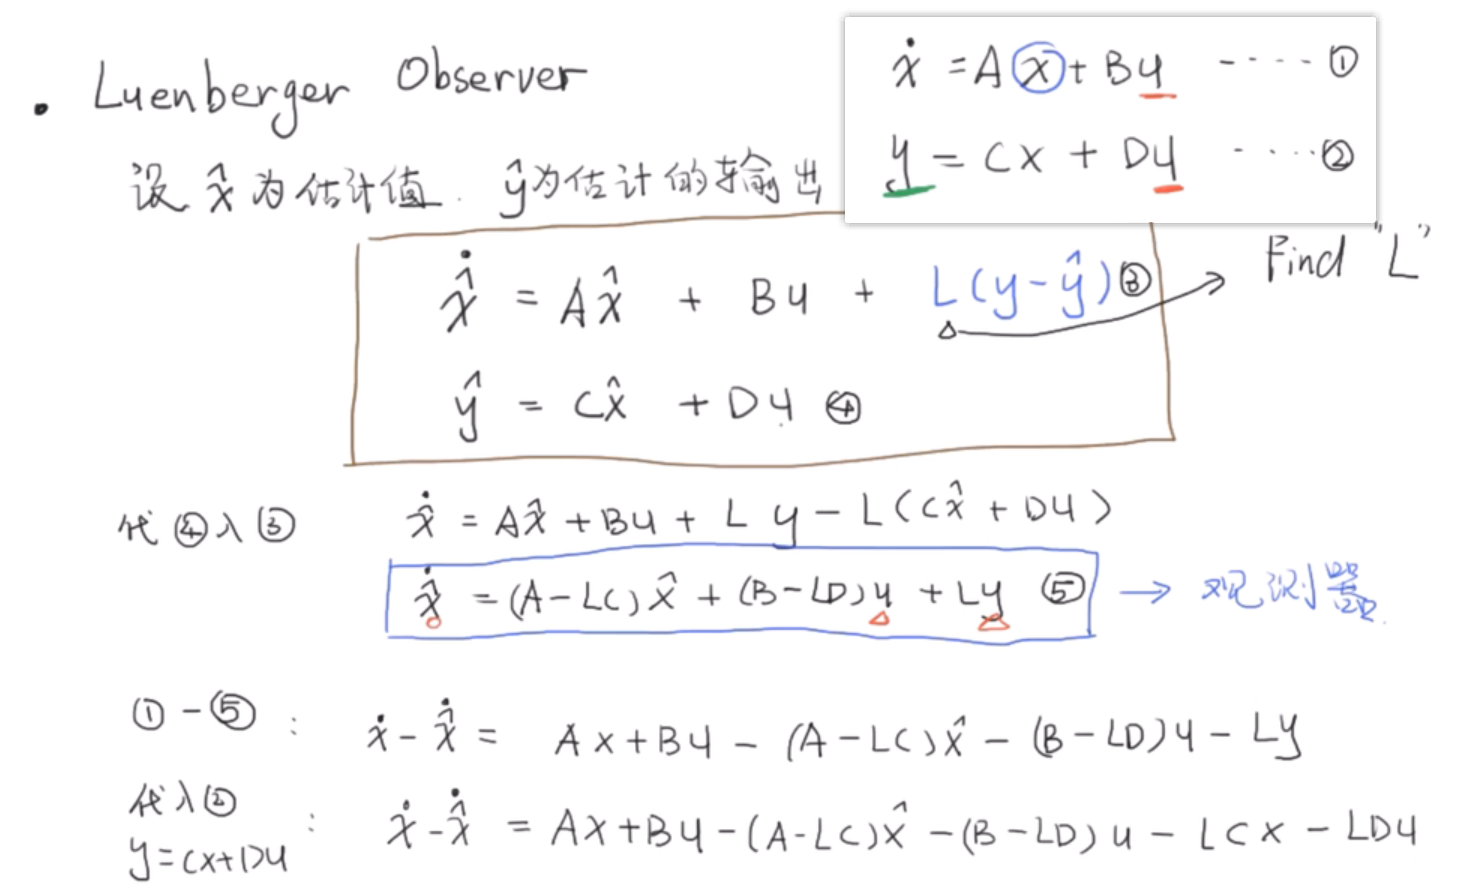 · Luenberger Observer
ẋ = Ax + Bu ····①
y = Cx + Du ····②
设 x̂ 为估计值. ŷ为估计的输出
x̂̇ = Ax̂ + Bu + L(y-ŷ)③ → Find "L"
ŷ = Cx̂ + Du ④
代④入③ x̂̇ = Ax̂ + Bu + Ly - L(Cx̂ + Du)
x̂̇ = (A-LC)x̂ + (B-LD)u + Ly ⑤ → 观测器
①-⑤ : ẋ - x̂̇ = Ax + Bu - (A-LC)x̂ - (B-LD)u - Ly
代入②
y=Cx+Du : ẋ - x̂̇ = Ax + Bu - (A-LC)x̂ - (B-LD)u - LCx - LDu